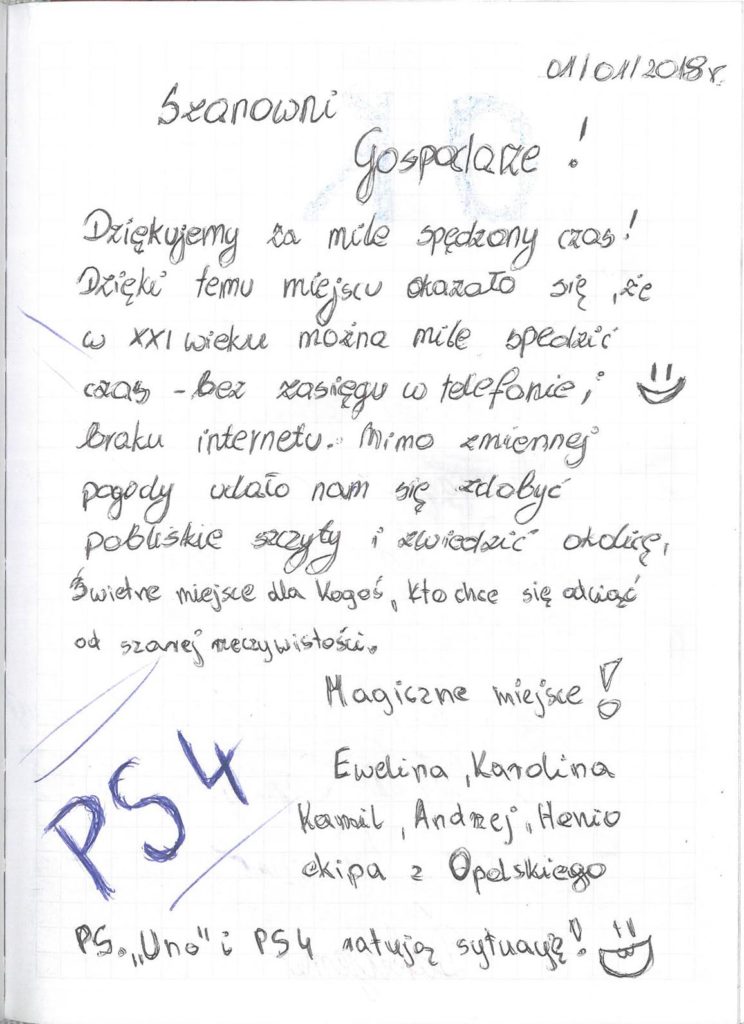 01/01/2018 r.
Szanowni
Gospodarze !
Dziękujemy za mile spędzony czas!
Dzięki temu miejscu okazało się, że
w XXI wieku można mile spędzić
czas - bez zasięgu w telefonie, i
braku internetu. Mimo zmiennej
pogody udało nam się zdobyć
pobliskie szczyty i zwiedzić okolicę,
Świetne miejsce dla kogoś, kto chce się odciąć
od szarej rzeczywistości.
Magiczne miejsce !
Ewelina, Karolina
Kamil, Andrzej, Henio
ekipa z Opolskiego
PS4
PS. „Uno" i PS4 ratują sytuację!